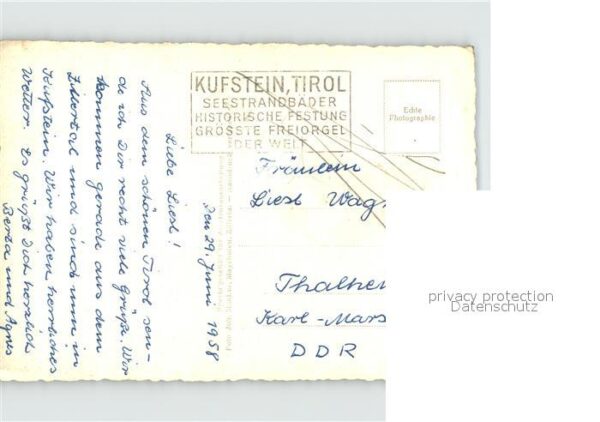 KUFSTEIN, TIROL
SEESTRANDBÄDER
HISTORISCHE FESTUNG
GRÖSSTE FREIORGEL
DER WELT
Echte
Photographie
den 29. Juni 1958
Liebe Liesl!
Aus dem schönen Tirol sen-
de ich Dir recht viele Grüße. Wir
kommen gerade aus dem
Zillertal und sind nun in
Kufstein. Wir haben herrliches
Wetter. Es grüßt Dich herzlich
Berta und Agnes
Fräulein
Liesl Wag
Thalhe
Karl-Mars
DDR
privacy protection
Datenschutz